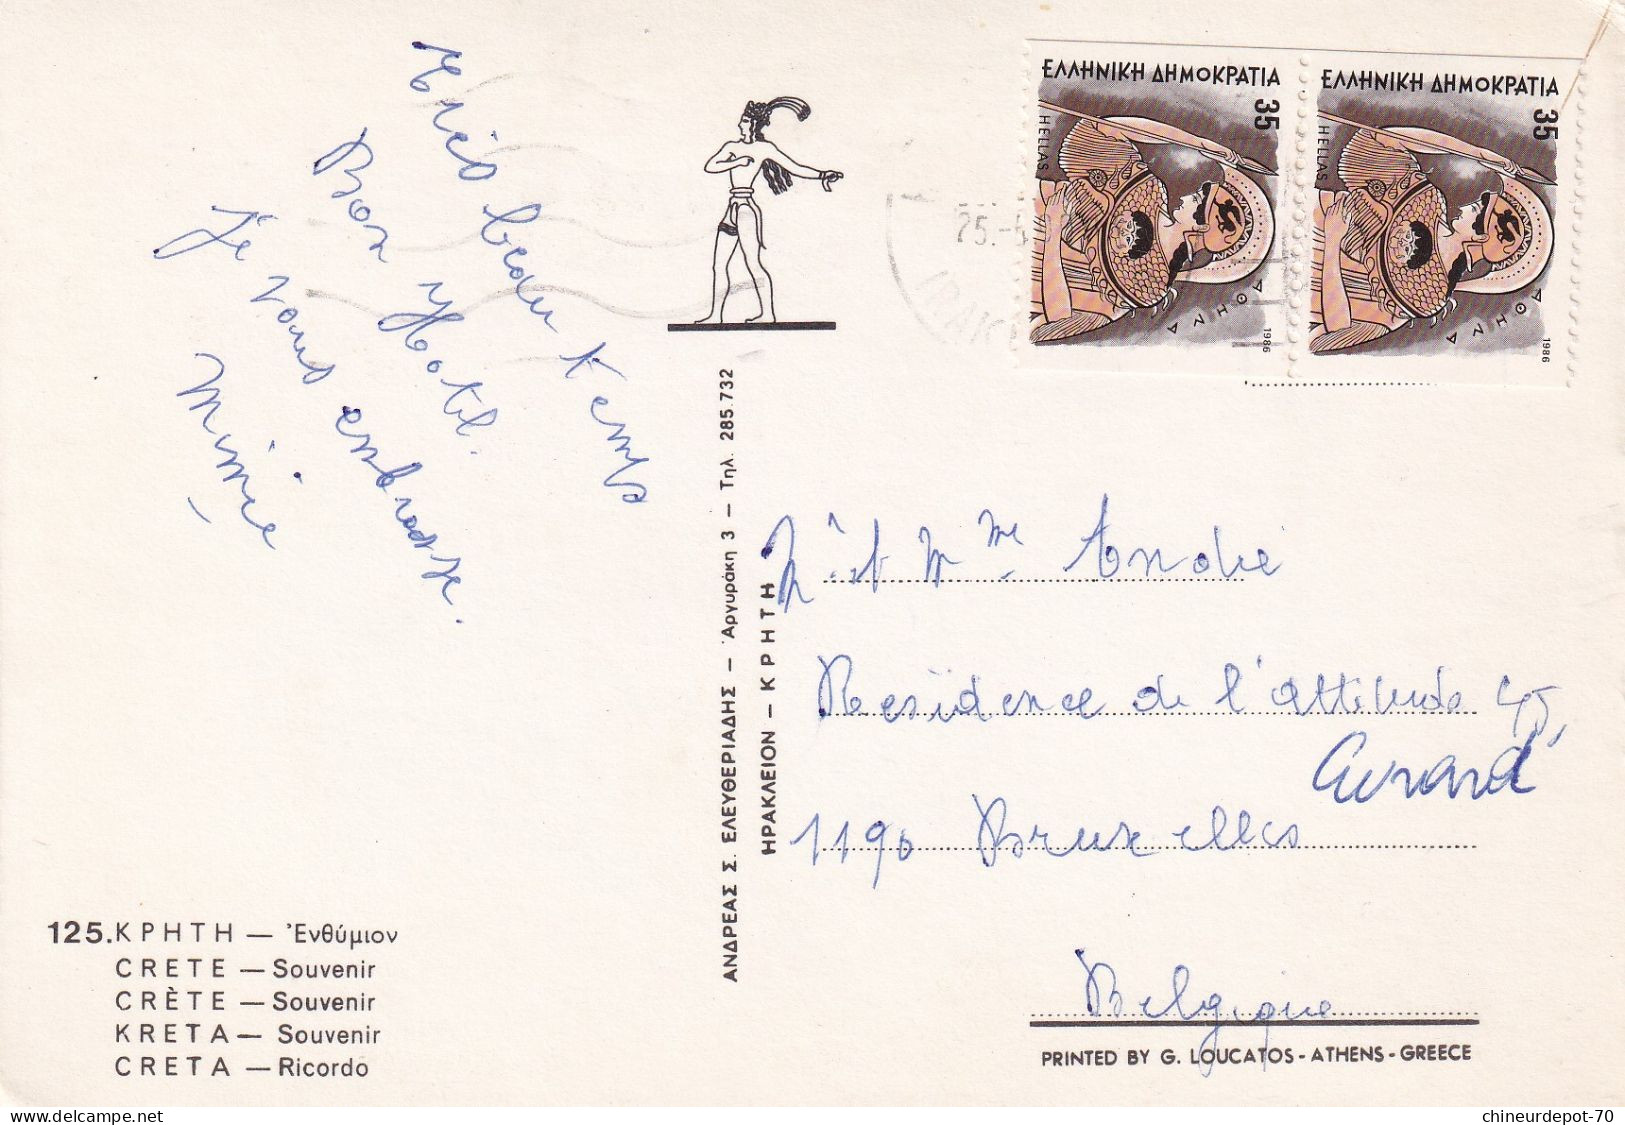 Très beau temps
Bon Hotel.
Je vous embrasse.
Mimie
ΕΛΛΗΝΙΚΗ ΔΗΜΟΚΡΑΤΙΑ
35
HELLAS
ΑΘΗΝΑ
1986
ΕΛΛΗΝΙΚΗ ΔΗΜΟΚΡΑΤΙΑ
35
HELLAS
ΑΘΗΝΑ
1986
25.
ΑΝΔΡΕΑΣ Σ. ΕΛΕΥΘΕΡΙΑΔΗΣ — Ἀργυράκη 3 — Τηλ. 285.732
ΗΡΑΚΛΕΙΟΝ - ΚΡΗΤΗ
et Mme André
Residence de l'attitude 45,
1190 Bruxelles
Belgique
PRINTED BY G. LOUCATOS - ATHENS - GREECE
125. ΚΡΗΤΗ — Ἐνθύμιον
CRETE — Souvenir
CRÈTE — Souvenir
KRETA — Souvenir
CRETA — Ricordo
delcampe.net
chineurdepot-70